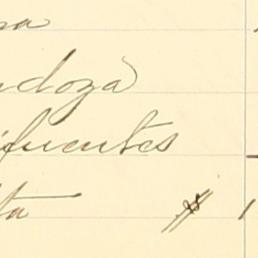 na
ndoza
ifuentes
ta $ 1